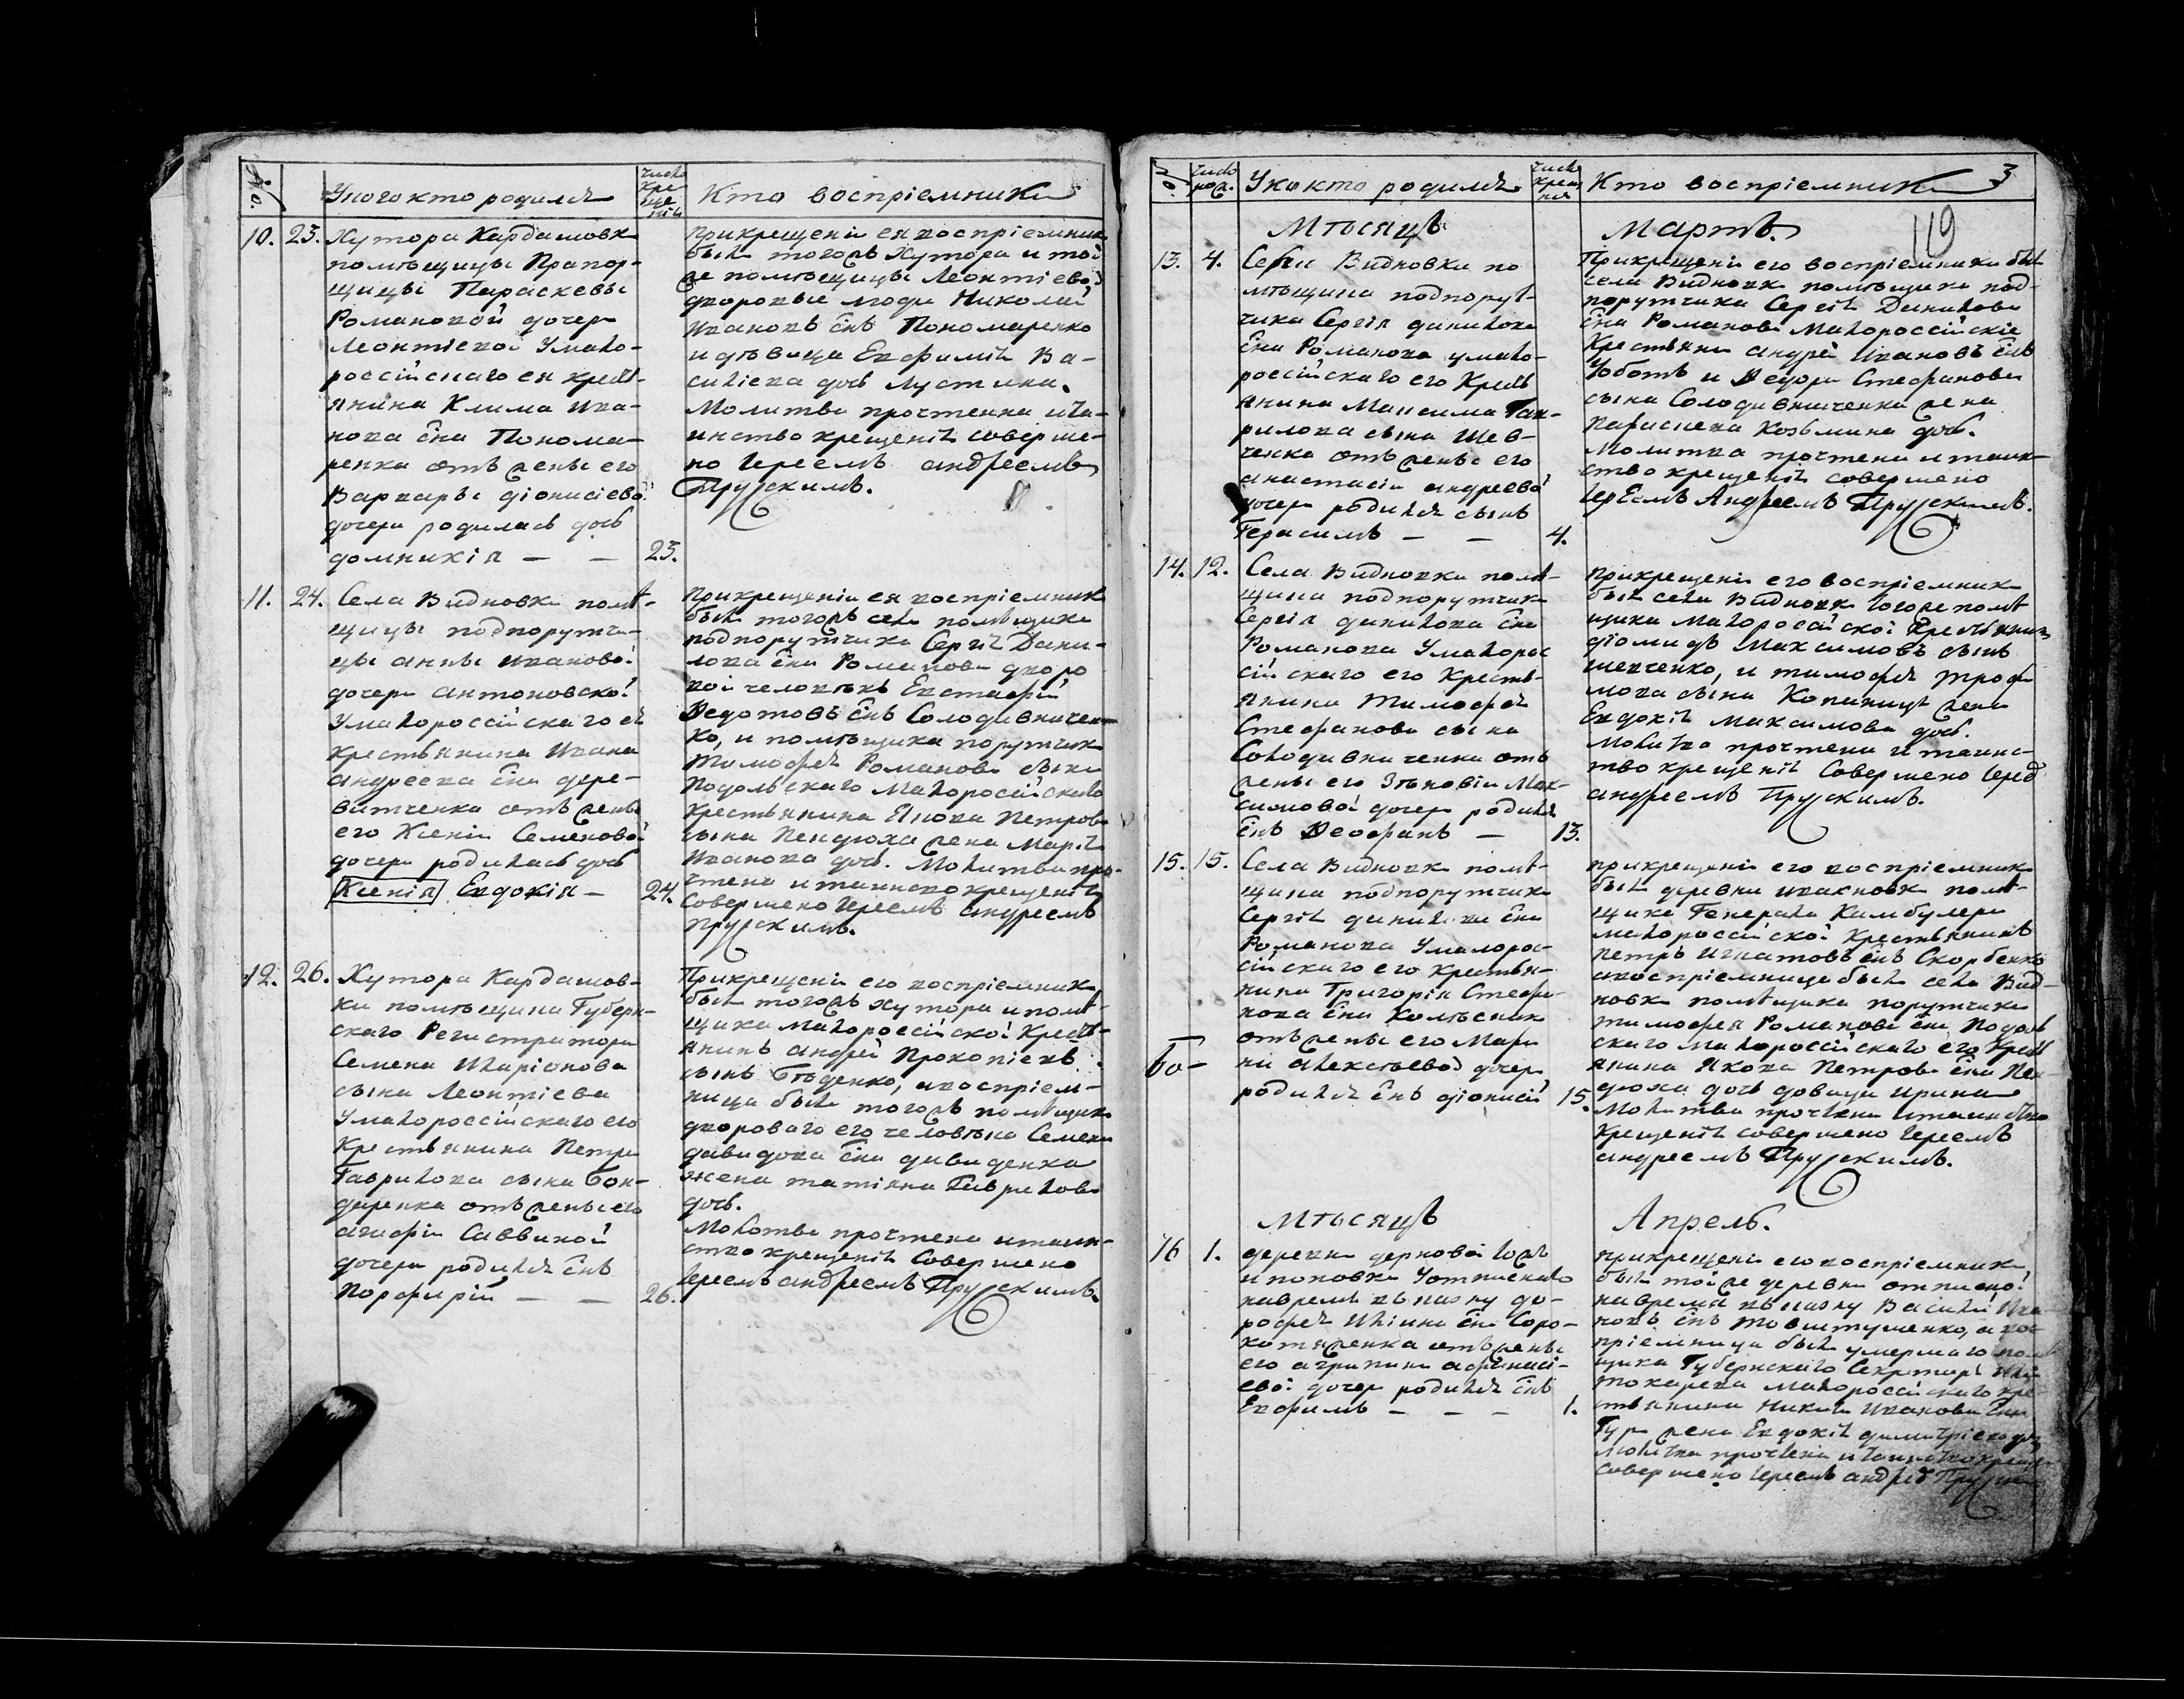 №.
У кого кто родился
число крещенія
Кто воспріемники
10. 23. Хутора Кардашовки
помѣщицы Прапор-
щицы Параскевы
Романовой дочери
Леонтіевой У мало-
россійскаго ея кресть-
янина Клима Ива-
нова сна Понома-
ренка отъ жены его
Варвары Діонисіевой
дочери родилась дочь
Домникія — — 23.
При крещеніи ея воспріемники
были тогожъ Хутора и той
же помѣщицы Леонтіевой
дворовые люди Николай
Ивановъ снъ Пономаренко
и дѣвица Евфимія Ва-
силіева дочь
Молитва прочтенна и та-
инство крещенія соверше-
но Іереемъ Андреемъ
Прускимъ.
11. 24. Села Видновки помѣ-
щицы подпоручи-
цы Анны Ивановой
дочери Антоновской
У малороссійскаго ея
крестьянина Ивана
Андреева сна Дере-
витченка отъ жены
его Ксеніи Семеновой
дочери родилась дочь
Ксенія Евдокія — 24.
При крещеніи ея воспріемники
были тогожъ села помѣщика
подпоручика Сергія Дани-
лова сна Романова дворо
вой человѣкъ Евстафій
Федотовъ снъ Солодивничен-
ко, и помѣщика поручика
Тимофея Романова сына
Подольскаго Малоросійскаго
крестьянина Якова Петрова
сына Пендюха жена Марія
Иванова дочь. Молитва про-
чтена и таинство крещенія
совершено Іереемъ Андреемъ
Прускимъ.
12. 26. Хутора Кардашов-
ки помѣщика Губерн-
скаго Регистратора
Семена Иларіонова
сына Леонтіева
У малороссійскаго его
Крестьянина Петра
Гаврилова сына Бон-
даренка отъ жены его
Агафіи Саввиной
дочери родился снъ
Порфирій — — 26.
При крещеніи его воспріемники
были тогожъ хутора и помѣ-
щика малороссійской Кресть-
янинъ Андрей Прокопіевъ
сынъ Бѣденко, а воспріем-
ница была тогожъ помѣщика
двороваго его человѣка Семена
Давидова сна Давиденка
жена Татіяна Гаврилова
дочь.
Молитва прочтена и таин-
ство крещенія Совершено
Іереемъ Андреемъ Прускимъ.
число рож.
У кого кто родился
число крещенія
Кто воспріемники
3
119
Мѣсяцъ Мартъ.
13. 4. Села Видновки по
мѣщика подпоруч-
чика Сергія Данилова
сна Романова у мало-
россійскаго его Кресть
янина Максима Гав-
рилова сына Шев-
ченка отъ жены его
Анастасіи Андреевой
дочери родился сынъ
Герасимъ — — 4.
При крещеніи его воспріемники были
села Видновки помѣщика под-
поручика Сергія Данилова
сна Романова Малороссійскіе
Крестьяне Андрей Ивановъ снъ
Чоботъ и Федора Стефанова
сына Солодивниченка жена
Параскева Козьмина дочь.
Молитва прочтена и таин-
ство крещенія совершено
Іереемъ Андреемъ Прускимъ.
14. 12. Села Видновки помѣ-
щика подпоручика
Сергія Данилова сна
Романова У малорос
сійскаго его Кресть-
янина Тимофея
Стефанова сына
Солодивниченка отъ
жены его Зѣновіи Мак-
симовой дочери родился
снъ Феофанъ — 13.
При крещеніи его воспріемники
были села Видновки того же помѣ
щика Малоросійской Крестьянинъ
Діомидъ Максимовъ сынъ
Шевченко, и Тимофея Трофи
мова сына жена
Евдокія Максимова дочь.
Молитва прочтена и таинс-
тво крещенія Совершено Іереемъ
Андреемъ Прускимъ.
15. 15. Села Видновки помѣ-
щика подпоручика
Сергія Данилова сна
Романова У малорос-
сійскаго его крестья-
нина Григорія Стефа-
нова сна Колѣсника
отъ жены его Маріи
Алексѣевой дочери
родился снъ Діонисій 15.
При крещеніи его воспріемники
были деревни Ивановки помѣ-
щика Генерала Камбулера
малороссійской крестьянинъ
Петръ Игнатовъ снъ Скорбенко
а воспріемница была села Вид-
новки помѣщика поручика
Тимофея Романова сна Подоль
скаго Малороссійскаго его Кресть
янина Якова Петрова сна Пен
дюха дочь дѣвица Ирина
Молитва прочтена и таинство
Крещенія совершено Іереемъ
Андреемъ Прускимъ.
Мѣсяцъ Апрель.
16 1. деревни
его Агрипины Афанасі-
евой дочери родился снъ
Евфимъ — — — 1.
При крещеніи его воспріемники
были той же деревни
Василій Ива-
новъ снъ а вос-
пріемница была умершаго помѣ
щика Губернскаго Секретаря
Токарева Малороссійскаго кре-
стьянина Никиты Иванова сна
жена Евдокія Димитріева дочь
Молитва прочтена и таинство крещенія
совершено Іереемъ